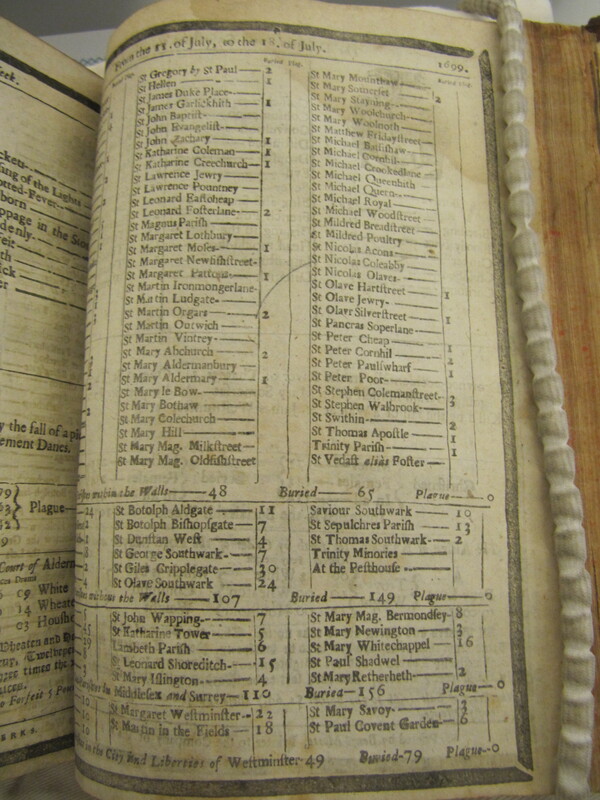 From the 11. of July, to the 18. of July. 1699.
St Gregory by St Paul— 2
St Hellen— 1
St James Duke Place—
St James Garlickhith— 1
St John Baptist—
St John Evangelist—
St John Zachary— 1
St Katharine Coleman— 1
St Katharine Creechurch— 1
St Lawrence Jewry—
St Lawrence Pountney
St Leonard Eastcheap
St Leonard Fosterlane— 2
St Magnus Parish—
St Margaret Lothbury—
St Margaret Moses— 1
St Margaret Newfishstreet-
St Margaret Pattons— 1
St Martin Ironmongerlane-
St Martin Ludgate—
St Martin Orgars— 2
St Martin Outwich—
St Martin Vintrey—
St Mary Abchurch— 2
St Mary Aldermanbury—
St Mary Aldermary— 1
St Mary le Bow—
St Mary Bothaw—
St Mary Colechurch—
St Mary Hill—
St Mary Mag. Milkstreet-
St Mary Mag. Oldfishstreet
St Mary Mounthaw—
St Mary Somerset
St Mary Stayning— 2
St Mary Woolchurch—
St Mary Woolnoth
St Matthew Fridaystreet
St Michael Bassishaw
St Michael Cornhil—
St Michael Crookedlane
St Michael Queenhith
St Michael Quern—
St Michael Royal—
St Michael Woodstreet
St Mildred Breadstreet
St Mildred Poultry
St Nicolas Acons
St Nicolas Coleabby
St Nicolas Olaves—
St Olave Hartstreet
St Olave Jewry— 1
St Olave Silverstreet
St Pancras Soperlane—
St Peter Cheap
St Peter Cornhil
St Peter Paulswharf
St Peter Poor—
St Stephen Colemanstreet-
St Stephen Walbrook-
St Swithin—
St Thomas Apostle
Trinity Parish—
St Vedast alias Foster—
within the Walls—48 Buried—65 Plague—0
St Botolph Aldgate— 11
St Botolph Bishopsgate 7
St Dunstan West— 4
St George Southwark- 7
St Giles Cripplegate— 30
St Olave Southwark 24
Saviour Southwark— 10
St Sepulchres Parish— 13
St Thomas Southwark- 2
Trinity Minories—
At the Pesthouse—
without the Walls—107 Buried—149 Plague—0
St John Wapping— 7
St Katharine Tower— 5
Lambeth Parish— 6
St Leonard Shoreditch— 15
St Mary Islington— 4
St Mary Mag. Bermondsey- 8
St Mary Newington
St Mary Whitechappel 16
St Paul Shadwel—
St Mary Retherheth— 2
in Middlesex and Surrey—110 Buried—156 Plague—0
St Margaret Westminster- 22
St Martin in the Fields— 18
St Mary Savoy—
St Paul Covent Garden- 6
in the City and Liberties of Westminster-49 Buried-79 Plague-0